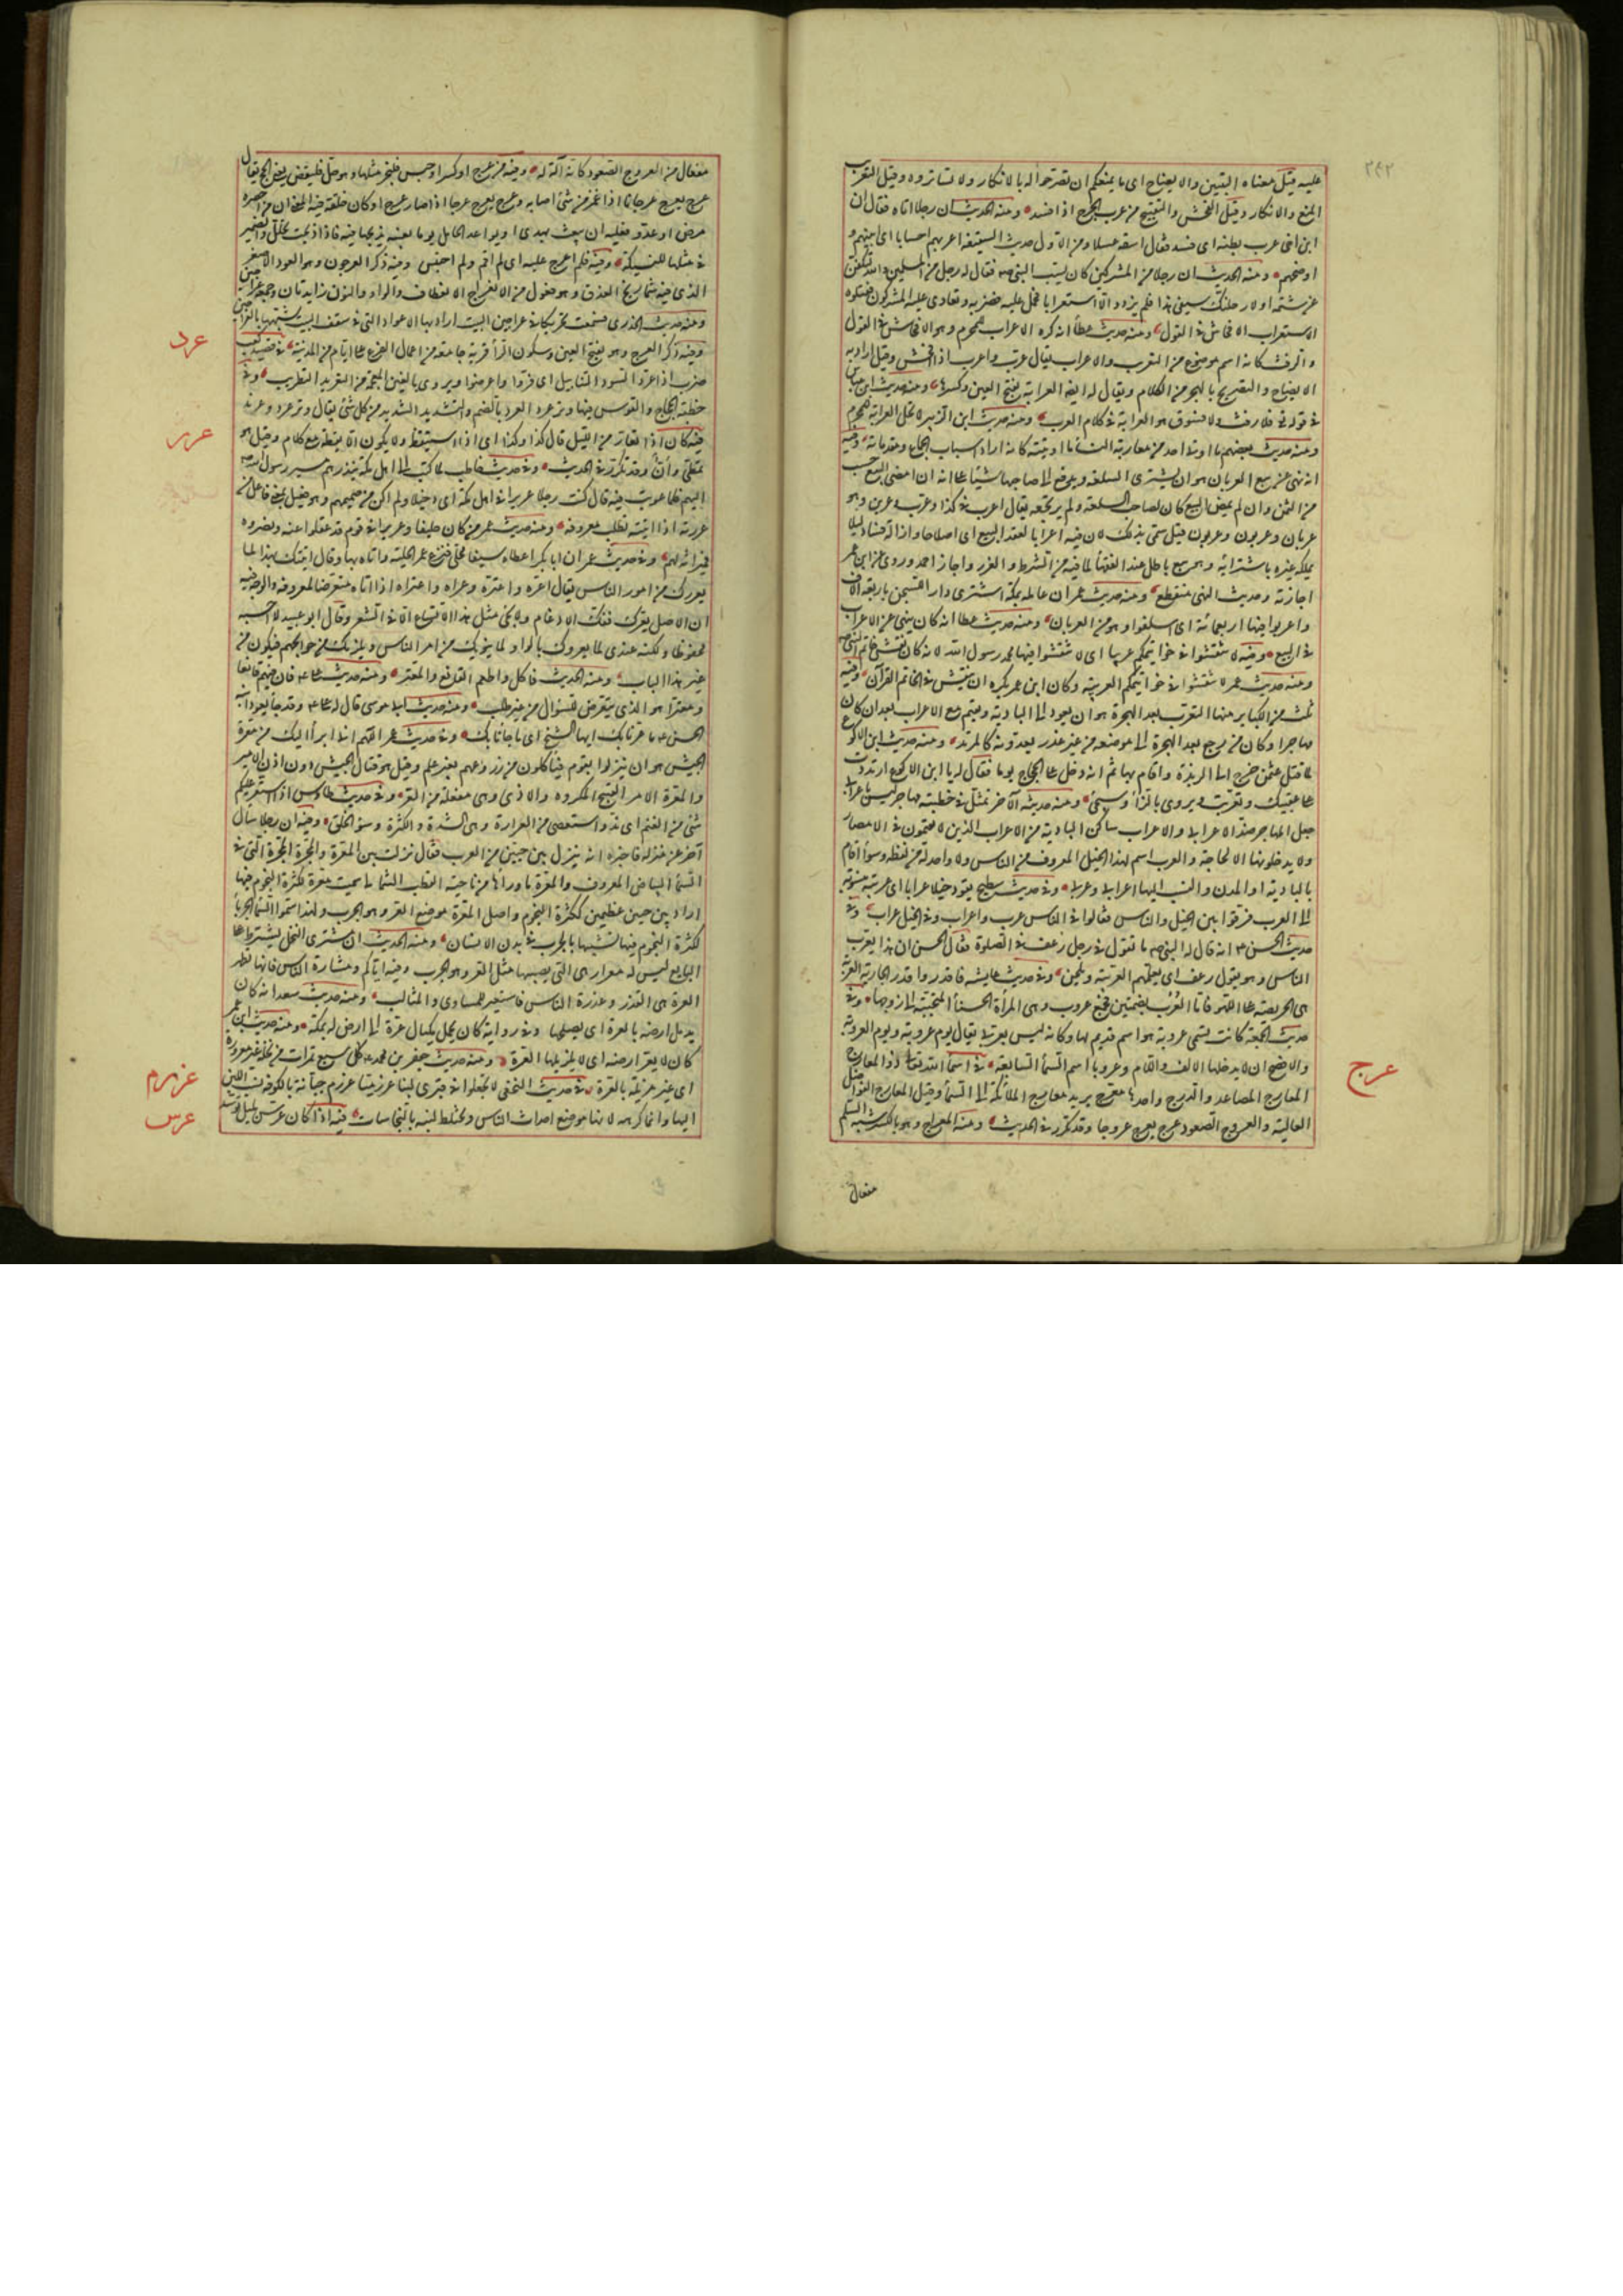 ٢٤٢
عليه قيل معناه التبيين والايضاح اى ما يمنعكم ان تصرحوا له بالانكار ولا تساتروه وقيل التعريب
المنع والانكار وقيل الفحش والتقبيح من عرب الجرح اذا فسد ومنه الحديث ان رجلا اتاه فقال ان
ابن اخى عرب بطنه اى فسد فقال اسقه عسلا ومن الاول حديث السقيفة اعربهم احسابا اى ابينهم و
اوضحهم ومنه الحديث ان رجلا من المشركين كان يسب النبى صه فقال له رجل من المسلمين والله لتكفن
عن شتمه او لارحلنك بسيفى هذا فلم يزدد الا استعرابا فحمل عليه فضربه وتعاوى عليه المشركون فقتلوه
الاستعراب الافحاش فى القول ومنه حديث عطأ انه كره الاعراب للمحرم وهو الافحاش فى القول
والرفث كانه اسم موضوع من التعريب والاعراب يقال عرب واعرب اذا افحش وقيل اراد به
الايضاح والتصريح بالهجر من الكلام ويقال له ايضا العرابة بفتح العين وكسرها ومنه حديث ابن عباس
فى قوله فى فلا رفث ولا فسوق هو العرابة فى كلام العرب ومنه حديث ابن الزبير لا تحل العرابة للمحرم
ومنه حديث بعضهم ما اوتى احد من معاربة النسأ ما اوتيته كانه اراد اسباب الجماع ومقدماته وفيه
انه نهى عن بيع العربان هو ان يشترى السلعة ويدفع الى صاحبها شيئا على انه ان امضى البيع حسب
من الثمن وان لم يمض البيع كان لصاحب السلعة ولم يرتجعه يقال اعرب فى كذا وعرب وعربن وهو
عربان وعربون وعربون قيل سمى بذلك لان فيه اعرابا لعقد البيع اى اصلاحا وازالة فساد ليلا
يملكه غيره باشترائه وهو بيع باطل عند الفقهأ لما فيه من الشرط والغرر واجازه احمد وروى عن ابن عمر
اجازته وحديث النهى منقطع ومنه حديث عمر ان عامله بمكة اشترى دارا للسجن باربعة الاف
واعربوا فيها اربعمائة اى اسلفوا وهو من العربان ومنه حديث عطا انه كان ينهى عن الاعراب
فى البيع وفيه لا تنقشوا فى خواتيمكم عربيا اى لا تنقشوا فيها محمد رسول الله لانه كان نقش خاتم النبى صه
ومنه حديث عمر لا تنقشوا فى خواتيمكم العربية وكان ابن عمر يكره ان ينقش فى الخاتم القرآن وفيه
ثلث من الكباير منها التعرب بعد الهجرة هو ان يعود الى البادية ويقيم مع الاعراب بعد ان كان
مهاجرا وكان من رجع بعد الهجرة الى موضعه من غير عذر يعدونه كالمرتد ومنه حديث ابن الاكوع
لما قتل عثمن خرج الى الربذة واقام بها ثم انه دخل على الحجاج يوما فقال له يا ابن الاكوع ارتددت
على عقبيك وتعربت ويروى بالزأ وسيجئ ومنه حديثه الآخر تمثل فى خطبته مهاجر ليس باعرابى
جعل المهاجر ضد الاعرابى والاعراب ساكن البادية من الاعراب الذين لا يقيمون فى الامصار
ولا يدخلونها الا لحاجة والعرب اسم لهذا الجيل المعروف من الناس ولا واحد له من لفظه وسوأ اقام
بالبادية او المدن والنسب اليها اعرابى وعربى وفى حديث سطيح يقود خيلا عرابا اى عربية منسوبة
الى العرب فرقوا بين الخيل والناس فقالوا فى الناس عرب واعراب وفى الخيل عراب وفى
حديث الحسن انه قال له البتى صه ما تقول فى رجل رعف فى الصلوة فقال الحسن ان هذا يعرب
الناس وهو يقول رعف اى يعلمهم العربية ويلحن وفى حديث عايشه فاقدروا قدر الجارية العربة
هى الحريصة على اللهو فاما العرب بضمتين فجمع عروب وهى المرأة الحسنأ المتحببة الى زوجها وفى
حديث الجمعة كانت تسمى عروبة هو اسم قديم لها وكانه ليس بعربى يقال يوم عروبة ويوم العروبة
والافصح ان لا يدخلها الالف واللام وعروبا اسم السمأ السابعة فى اسمأ الله تعالى ذو المعارج
المعارج المصاعد والدرج واحدها معرج يريد معارج الملائكة الى السمأ وقيل المعارج الفواضل
العالية والعروج الصعود عرج يعرج عروجا وقد تكرر فى الحديث ومنه المعراج وهو بالكسر شبه السلم
عرج
مفعال
مفعال من العروج الصعود كانه آلة له وفيه من عرج او كسر او حبس فليجز مثلها وهو حل فليقض يعنى الحج يقال
عرج يعرج عرجانا اذا غمز من شئ اصابه وعرج يعرج عرجا اذا صار عرج او كان خلقة فيه المعنى ان من احصره
مرض او عدو فعليه ان يبعث بهدى او يواعد الحامل يوما بعينه يذبحها فيه فاذا ذبحت تحلل والضمير
فى مثلها للنسيكة وفيه فلم اعرج عليه اى لم اقم ولم احتبس وفيه ذكر العرجون وهو العود الاصفر
الذى فيه شماريخ العذق وهو فعلول من الانعراج الانعطاف والواو والنون زايدتان وجمعه عراجين
ومنه حديث الخدرى فسمعت تحريكا فى عراجين البيت اراد بها الاعواد التى فى سقف البيت شبهها بالعراجين
وفيه ذكر العرج وهو بفتح العين وسكون الرأ قرية جامعة من اعمال الفرع على ايام من المدينة فى قصيد كعب
ضرب اذا عرد السود التنابيل اى فروا واعرضوا ويروى بالغين المعجمة من التغريد التطريب وفى
خطبة الحجاج والقوس فيها وتر عرد العرد بالضم والتشديد الشديد من كل شئ يقال وتر عرد وعرند
فيه كان اذا تعار من الليل قال كذا وكذا اى اذا استيقظ ولا يكون الا يقظة مع كلام وقيل هو
تمطى وأن وقد تكرر فى الحديث وفى حديث حاطب لما كتب الى اهل مكة ينذرهم مسير رسول الله صه
اليهم فلما عوتب فيه قال كنت رجلا عريرا فى اهل مكة اى دخيلا ولم اكن من صميمهم وهو فعيل بمعنى فاعل من
عررته اذا اتيته تطلب معروفه ومنه حديث عمر من كان حليفا وعريرا فى قوم قد عقلوا عنه ونصروه
فميراثه لهم وفى حديث عمر ان ابا بكر اعطاه سيفا محلى فنزع عمر الحلية واتاه بها وقال اتيتك بهذا لما
يعررك من امور الناس يقال اعره واعتره وعراه واعتراه اذا اتاه متعرضا لمعروفه والوجه فيه
ان الاصل يعرك ففك الادغام ولا يجئ مثل هذا الاتساع الا فى الشعر وقال ابو عبيد لا احسبه
محفوظا ولكنه عندى لما يعروك بالواو لما ينوبك من امر الناس ويلزمك من حوايجهم فيكون من
غير هذا الباب ومنه الحديث فاكل واطعم القانع والمعتر ومنه حديث على فان فيهم قانعا
ومعترا هو الذى يتعرض للسؤال من غير طلب ومنه حديث ابى موسى قال له على وقد جا يعود ابنه
الحسن ما عرنا بك ايها الشيخ اى ما جأنا بك وفى حديث عمر اللهم انى ابرأ اليك من معرة
الجيش هو ان ينزلوا بقوم فيأكلون من زروعهم بغير علم وقيل هو قتال الجيش دون اذن الامير
والمعرة الامر القبيح المكروه والاذى وهى مفعلة من العر وفى حديث طاوس اذا استعر عليكم
شئ من الغنم اى ند واستعصى من العرارة وهى الشدة والكثرة وسؤ الخلق وفيه ان رجلا سأل
آخر عن منزله فاخبره انه ينزل بين حيين من العرب فقال نزلت بين المعرة والمجرة المجرة التى فى
السمأ البياض المعروف والمعرة ما وراها من ناحية القطب الشمالى سميت معرة لكثرة النجوم فيها
اراد بين حيين عظيمين ككثرة النجوم واصل المعرة موضع العر وهو الجرب ولهذا سموا السمأ الجربأ
لكثرة النجوم فيها تشبيها بالجرب فى بدن الانسان ومنه الحديث ان مشترى النخل يشترط على
البايع ليس له معرار هى التى يصيبها مثل العر وهو الجرب وفيه اياكم ومشارة الناس فانها تظهر
العرة هى القذر وعذرة الناس فاستعير للمساوى والمثالب ومنه حديث سعد انه كان
يدمل ارضه بالعرة اى يصلحها وفى رواية كان يحمل مكيال عرة الى ارض له بمكة ومنه حديث ابن عمر
كان لا يعر ارضه اى لا يزبلها العرة ومنه حديث جعفر بن محمد كل سبع تمرات من نخلة غير معرورة
اى غير مزبلة بالعرة فى حديث النخعى لا تجعلوا فى قبرى لبنا عرزميا عرزم جبانة بالكوفة نسب اللبن
اليها وانما كرهه لانها موضع احداث الناس ويختلط لبنه بالنجاسات فيه اذا كان عرس بليل توسد
عرد
عرر
عرزم
عرس